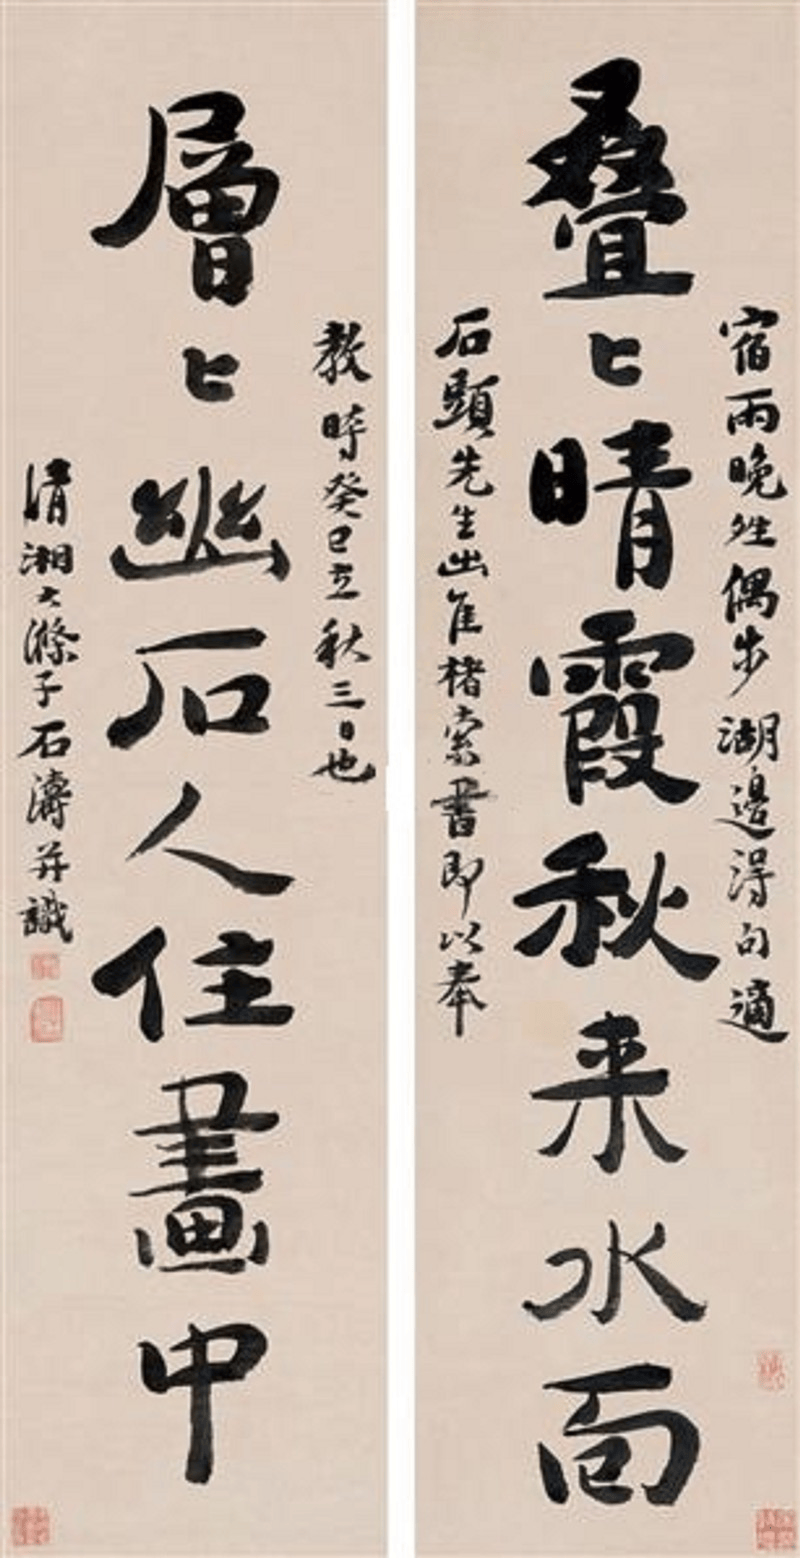 宿雨晚夝偶步湖邊得句適
叠〻晴霞秋来水面
石頭先生出佳楮索書即以奉
教時癸巳立秋三日也
層〻幽石人住畫中
清湘大滌子石濤并識